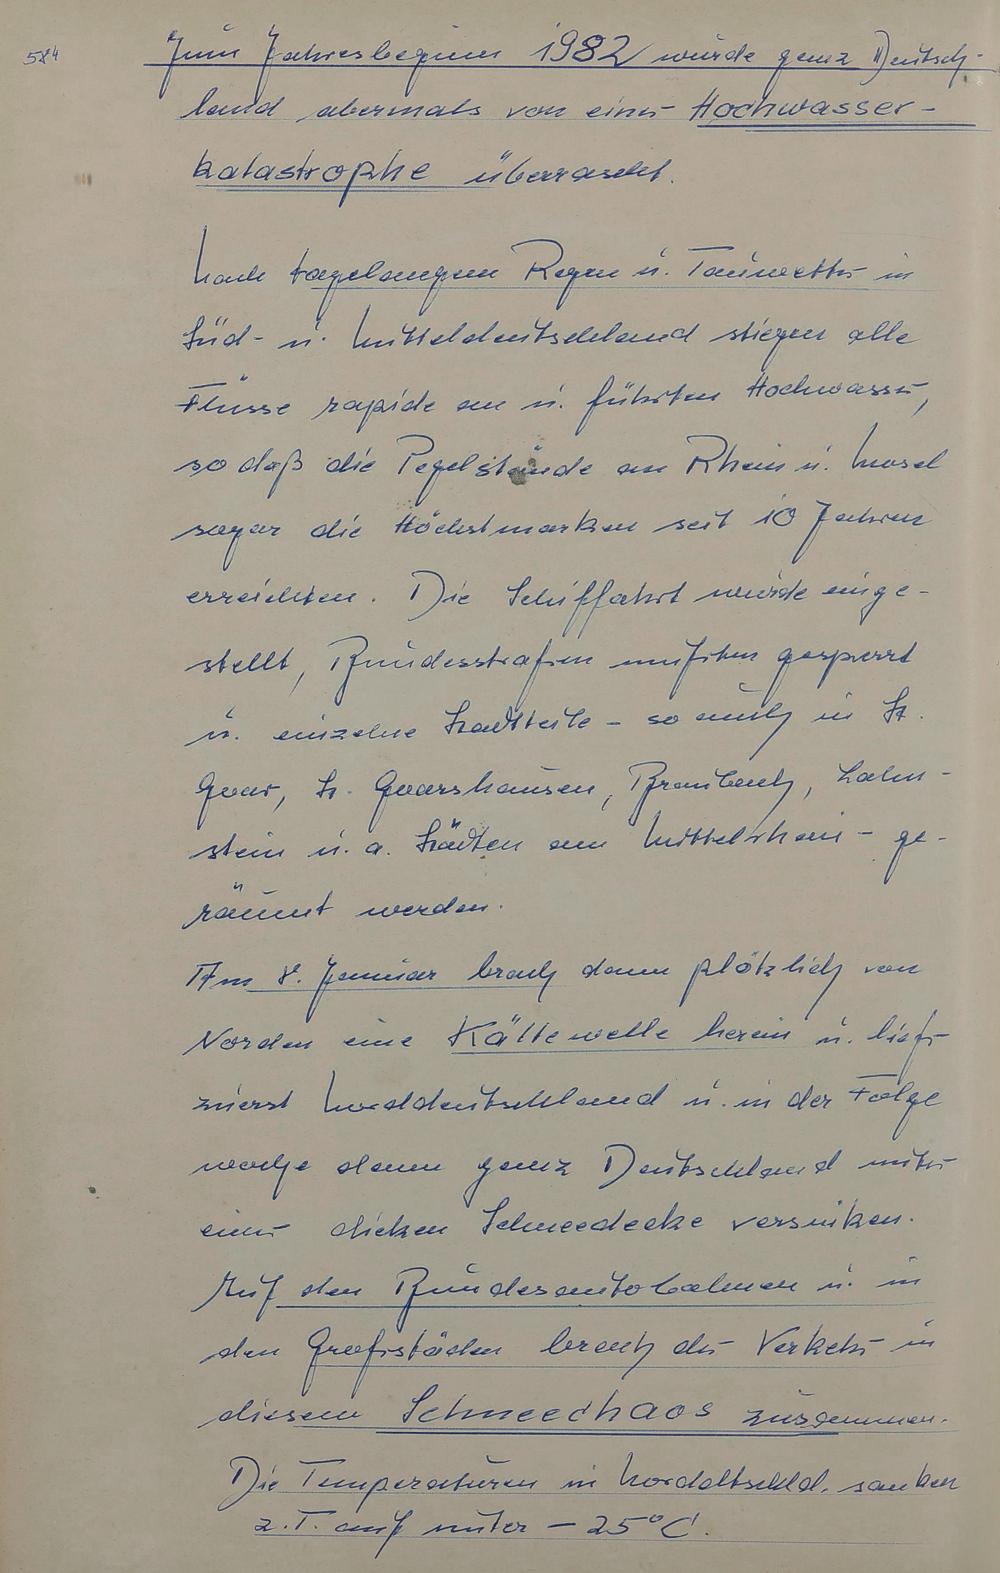 584
Zum Jahresbeginn 1982 wurde ganz Deutsch-
land abermals von einer Hochwasser-
katastrophe überrascht.
Nach tagelangem Regen u. Tauwetter in
Süd- u. Mitteldeutschland stiegen alle
Flüsse rapide an u. führten Hochwasser,
so daß die Pegelstände an Rhein u. Mosel
sogar die Höchstmarken seit 10 Jahren
erreichten. Die Schiffahrt wurde einge-
stellt, Bundesstraßen mußten gesperrt
u. einzelne Stadtteile - so auch in St.
Goar, St. Goarshausen, Braubach, Lahn-
stein u. a. Städten am Mittelrhein - ge-
räumt werden.
Am 8. Januar brach dann plötzlich von
Norden eine Kältewelle herein u. ließ
zuerst Norddeutschland u. in der Folge
woche dann ganz Deutschland unter
einer dicken Schneedecke versinken.
Auf den Bundesautobahnen u. in
den Großstäden brach der Verkehr in
diesem Schneechaos zusammen.
Die Temperaturen in Norddtschld. sanken
z. T. auf unter - 25°C.